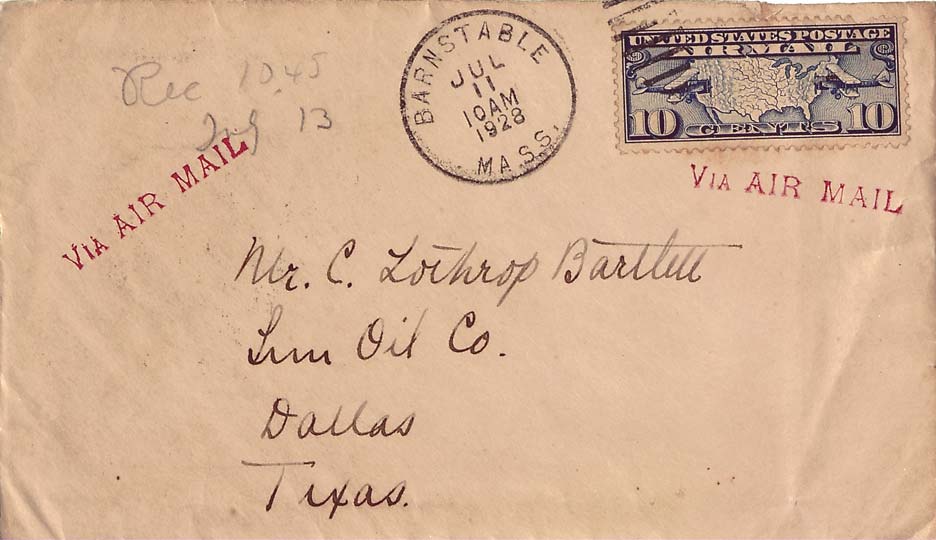 Rec 10.45
July 13
BARNSTABLE
JUL
11
10 AM
1928
MASS.
UNITED STATES POSTAGE
AIR MAIL
10 CENTS 10
VIA AIR MAIL
VIA AIR MAIL
Mr. C. Lothrop Bartlett
Sun Oil Co.
Dallas
Texas.